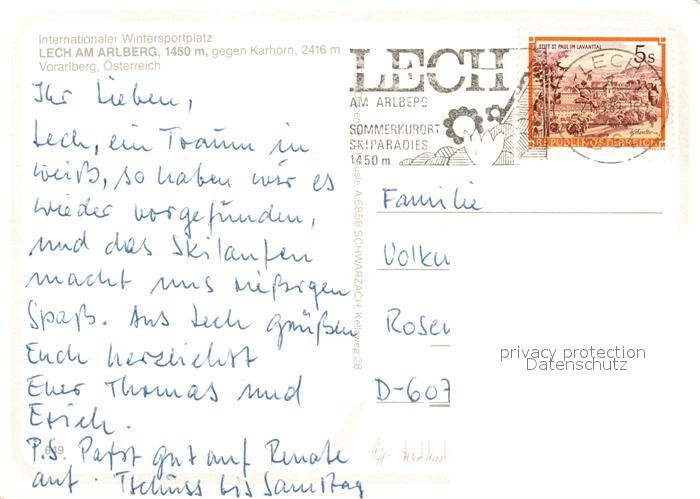 Internationaler Wintersportplatz
LECH AM ARLBERG, 1450 m, gegen Karhorn, 2416 m
Vorarlberg, Österreich
Ihr Lieben,
Lech, ein Traum in
weiß, so haben wir es
wieder vorgefunden,
und das Skilaufen
macht uns rießigen
Spaß. Aus Lech grüßen
Euch herzlichst
Euer Thomas und
Erich.
P.S. Paßt gut auf Renate
auf. Tschüss bis Samstag
649
A-6858 SCHWARZACH, Kellaweg 28
LECH
AM ARLBERG
SOMMERKURORT
SKIPARADIES
1450 m
STIFT ST. PAUL IM LAVANTTAL
5 S
REPUBLIK ÖSTERREICH
LECH
Familie
Volku
Rosen
D-607
privacy protection
Datenschutz